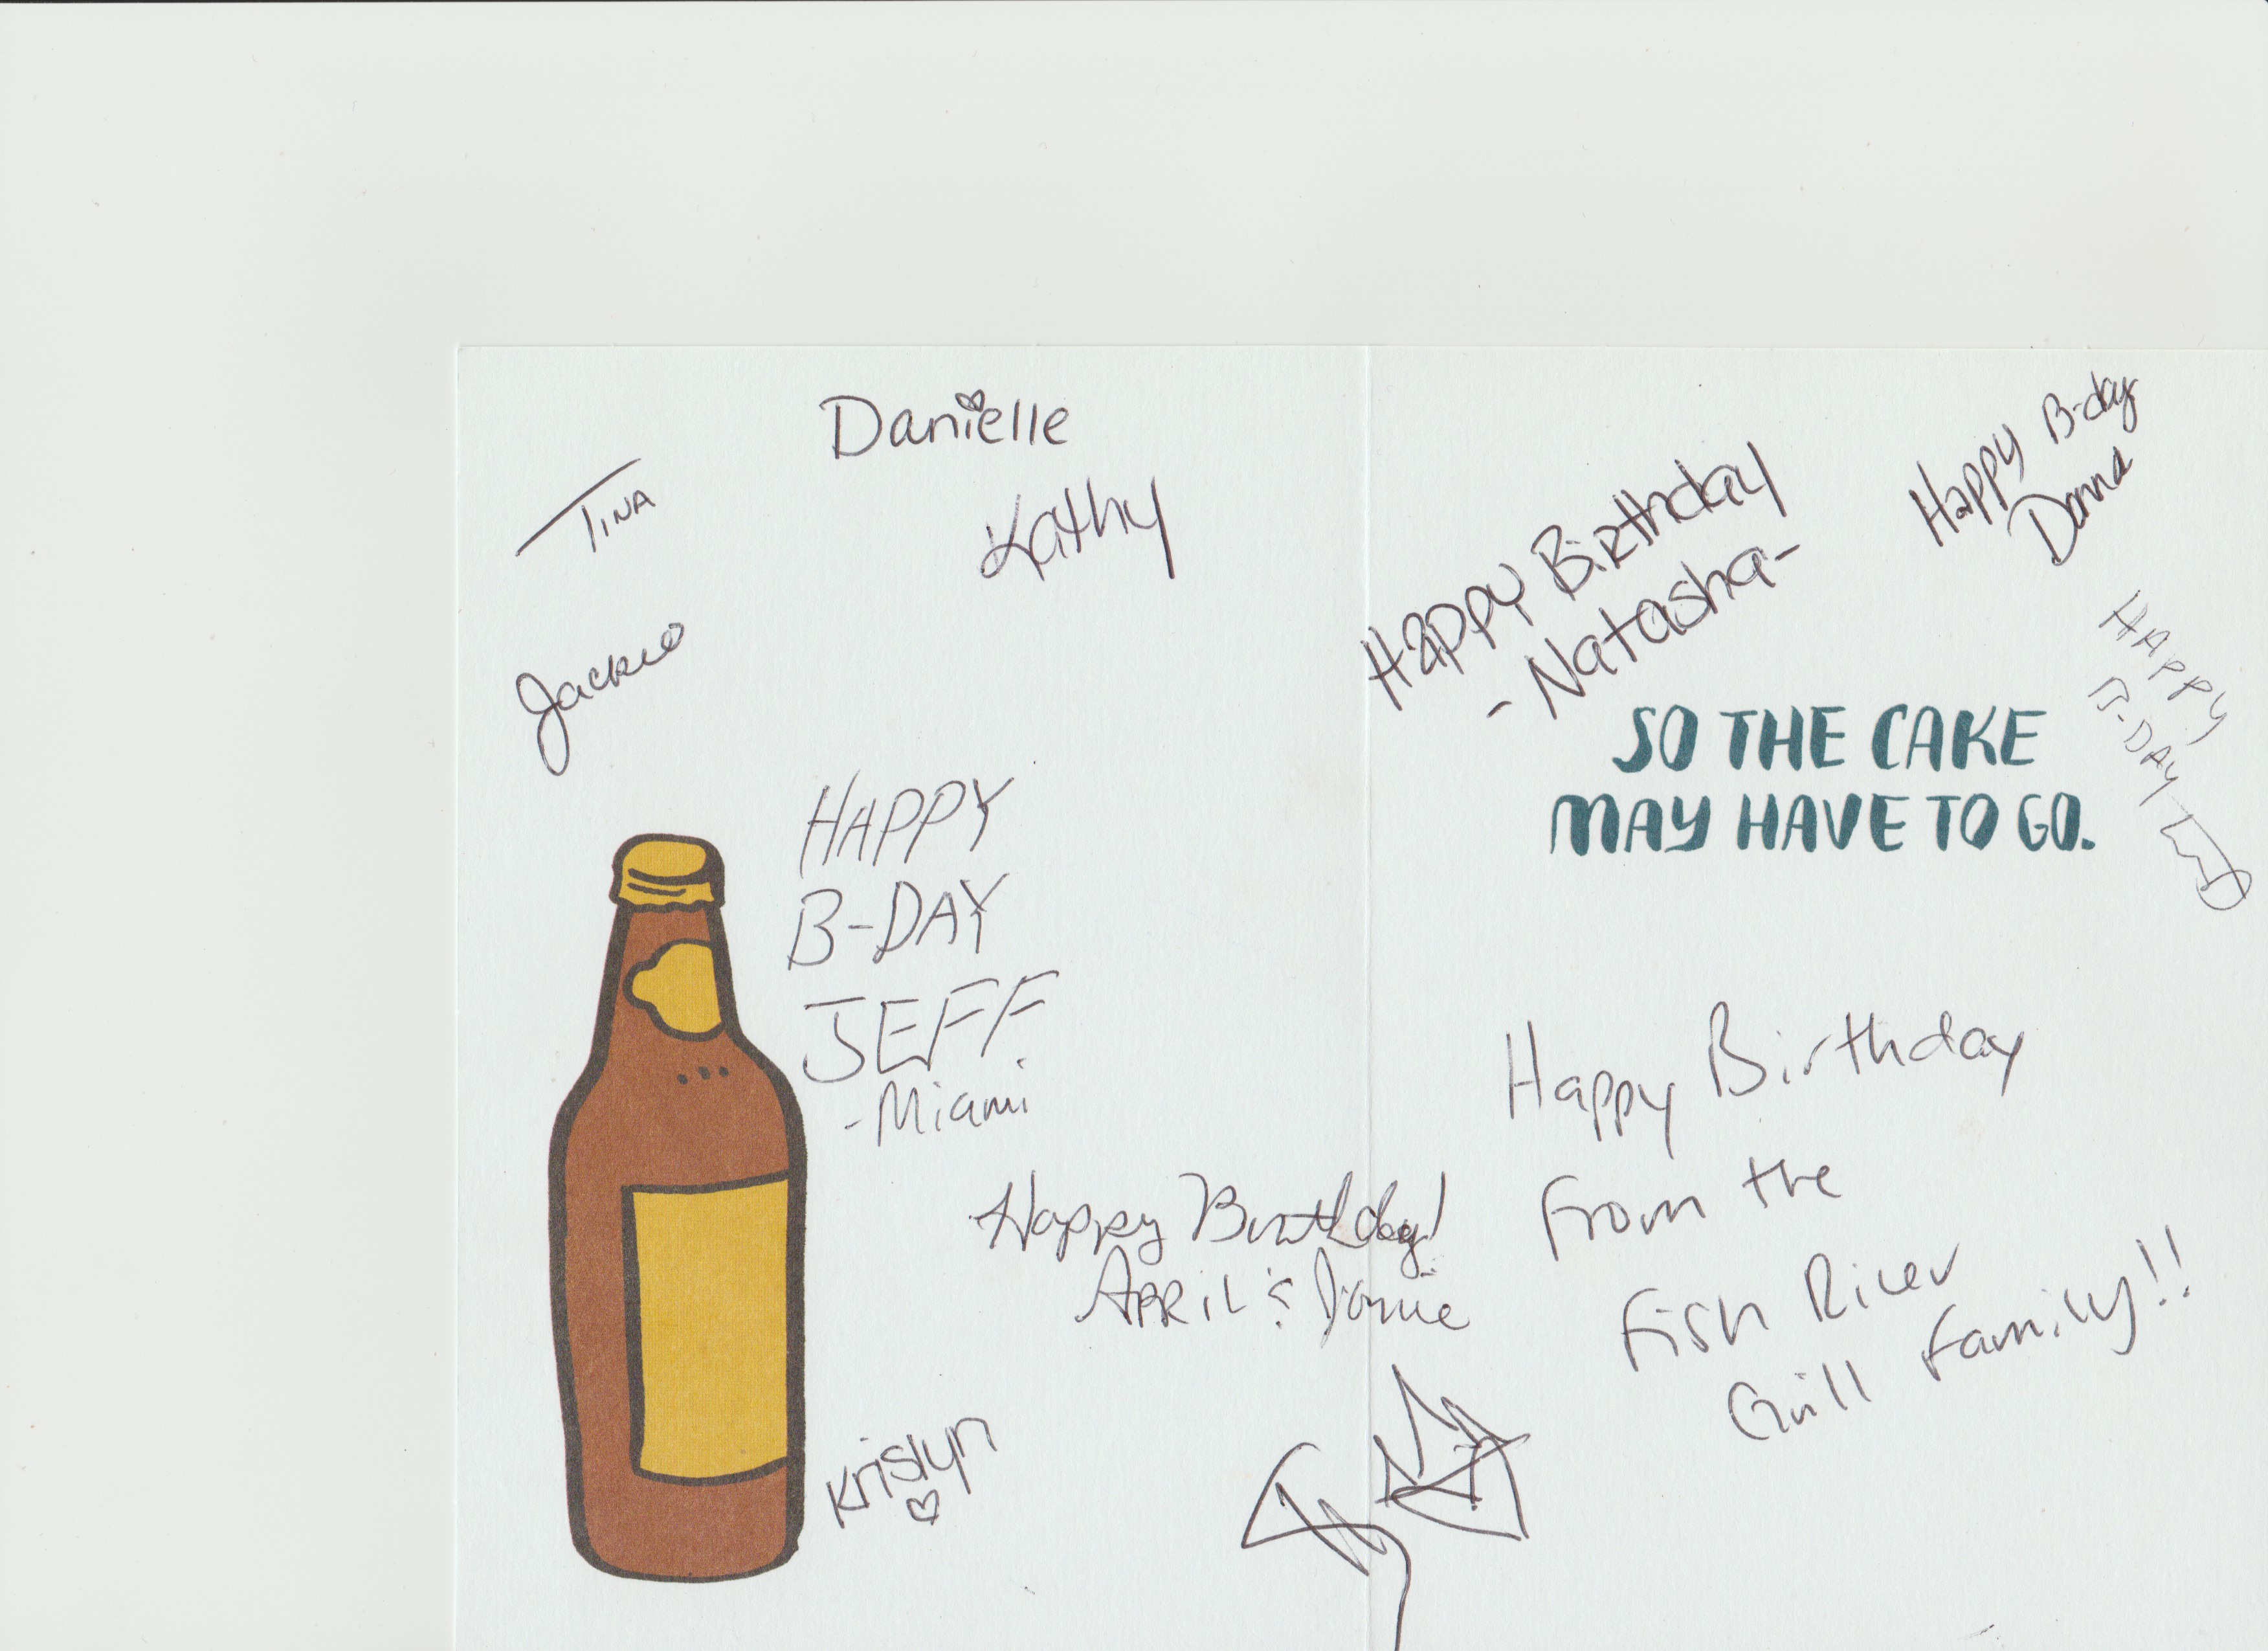 Danielle
Kathy
TINA
Jackie
HAPPY
B-DAY
JEFF.
-Miami
Happy Birthday!
APRIL &
Krislyn
Happy Birthday
- Natasha -
Happy B-day
Donna
HAPPY
B-DAY
SO THE CAKE
MAY HAVE TO GO.
Happy Birthday
from the
Fish River
Grill family!!